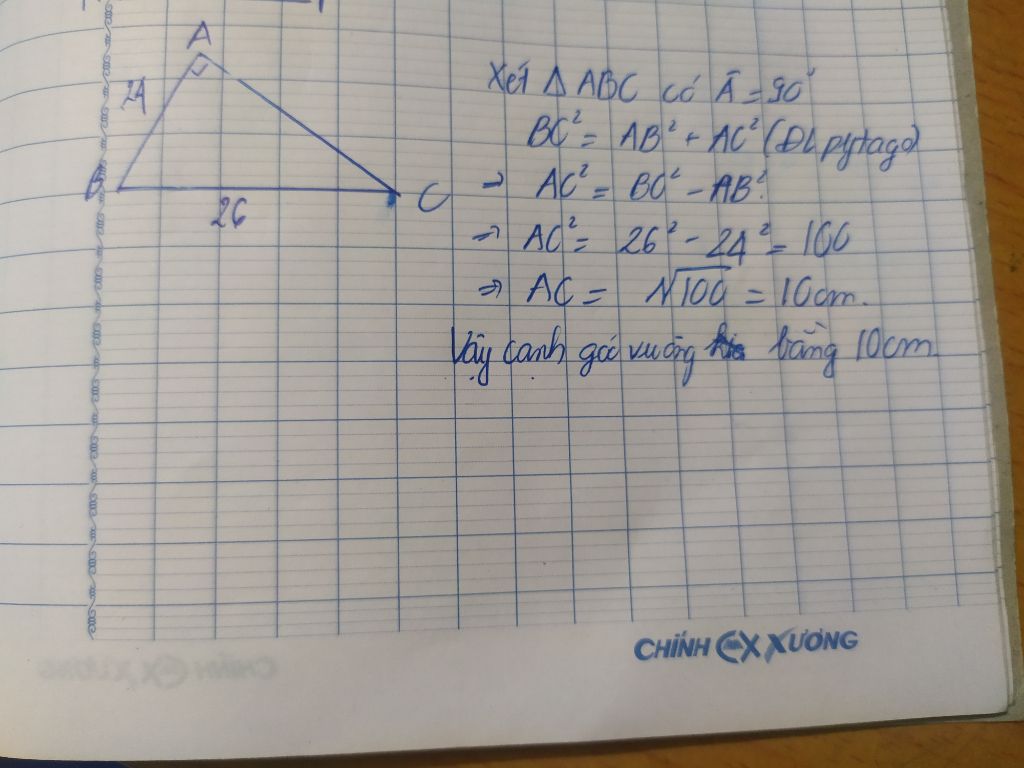 A
24
B
26
C
Xét Δ ABC có Â = 90°
BC² = AB² + AC² (ĐL pytago)
⇒ AC² = BC² - AB²
⇒ AC² = 26² - 24² = 100
⇒ AC = √100 = 10cm.
Vậy cạnh góc vuông bằng 10cm
CHÍNH XƯƠNG